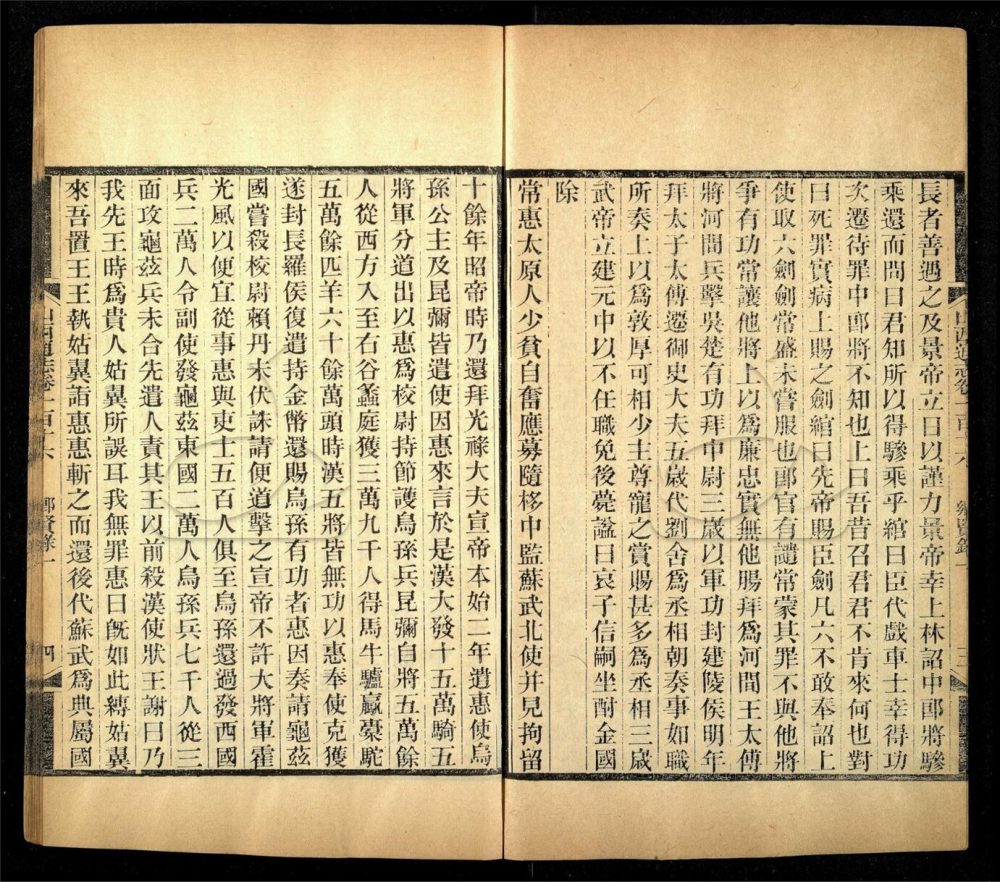 長者善遇之及景帝立日以謹力景帝幸上林詔中郎將驂
乘還而問曰君知所以得驂乘乎綰曰臣代戲車士幸得功
次遷待罪中郎將不知也上曰吾昔召君君不肯來何也對
曰死罪實病上賜之劍綰曰先帝賜臣劍凡六不敢奉詔上
使取六劍劍常盛未嘗服也郎官有譴常蒙其罪不與他將
爭有功常讓他將上以爲廉忠實無他腸拜爲河間王太傅
將河間兵擊吳楚有功拜中尉三歲以軍功封建陵侯明年
拜太子太傅遷御史大夫五歲代劉舍爲丞相朝奏事如職
所奏上以爲敦厚可相少主尊寵之賞賜甚多爲丞相三歲
武帝立建元中以不任職免後薨諡曰哀子信嗣坐酎金國
除
常惠太原人少貧自奮應募隨栘中監蘇武北使并見拘留
山西通志卷一百二十六 鄉賢錄一 三
十餘年昭帝時乃還拜光祿大夫宣帝本始二年遣惠使烏
孫公主及昆彌皆遣使因惠來言於是漢大發十五萬騎五
將軍分道出以惠爲校尉持節護烏孫兵昆彌自將五萬餘
人從西方入至右谷蠡庭獲三萬九千人得馬牛驢驘橐駝
五萬餘匹羊六十餘萬頭時漢五將皆無功以惠奉使克獲
遂封長羅侯復遣持金幣還賜烏孫有功者惠因奏請龜茲
國嘗殺校尉賴丹未伏誅請便道擊之宣帝不許大將軍霍
光風以便宜從事惠與吏士五百人俱至烏孫還過發西國
兵二萬人令副使發龜茲東國二萬人烏孫兵七千人從三
面攻龜茲兵未合先遣人責其王以前殺漢使狀王謝曰乃
我先王時爲貴人姑翼所誤耳我無罪惠曰旣如此縛姑翼
來吾置王王執姑翼詣惠惠斬之而還後代蘇武爲典屬國
山西通志卷一百二十六 鄉賢錄一 四